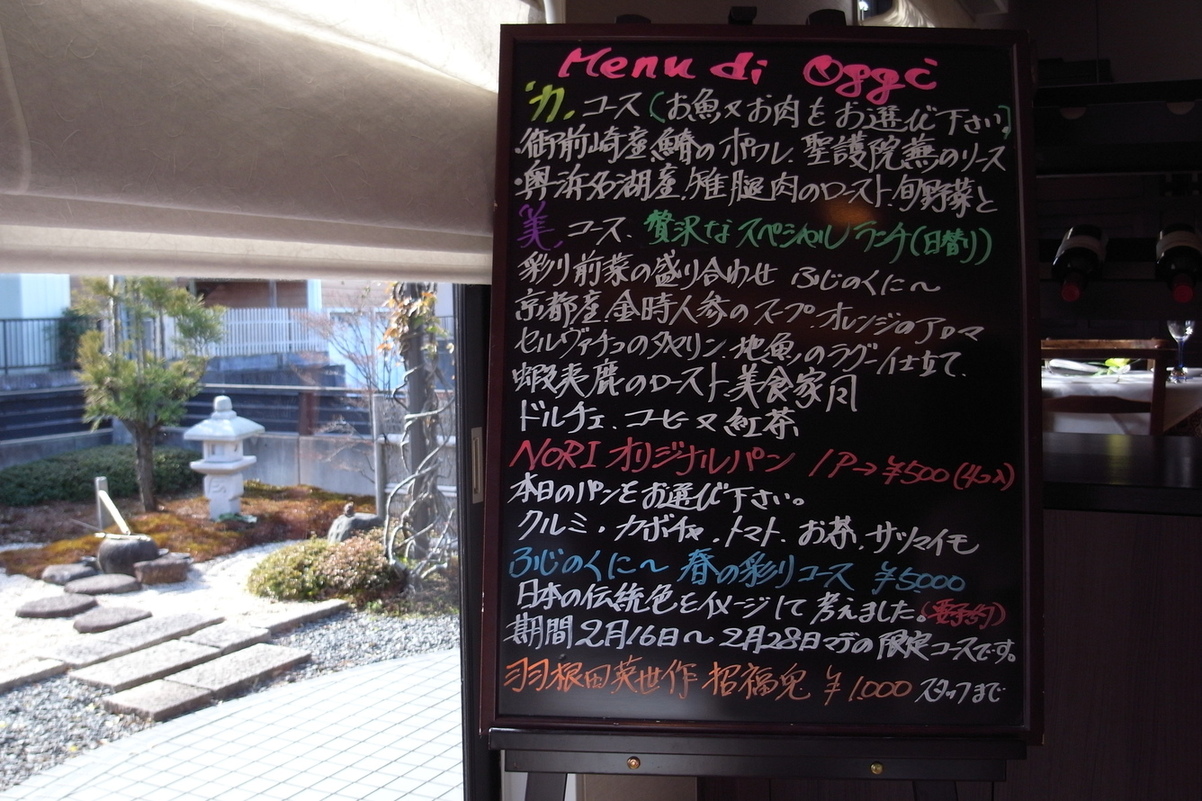 Menu di Oggi
力, コース (お魚又お肉をお選び下さい。)
・御前崎産鰆のポワレ、聖護院蕪のソース
・奥浜名湖産、雉腿肉のロースト、旬野菜と
美, コース、贅沢なスペシャルランチ(日替り)
彩り前菜の盛り合わせ ふじのくに〜
京都産金時人参のスープ、オレンジのアロマ
セルヴァチコのタヤリン、地魚のラグー仕立て、
蝦夷鹿のロースト、美食家風
ドルチェ、コーヒー又紅茶
NORI オリジナルパン 1P→¥500(4コ入)
本日のパンをお選び下さい。
クルミ・カボチャ、トマト、お茶、サツマイモ
ふじのくに〜 春の彩りコース ¥5,000
日本の伝統色をイメージして考えました。(要予約)
期間2月16日〜2月28日マデの限定コースです。
羽根田英世作 招福鬼 ¥1,000 スタッフまで